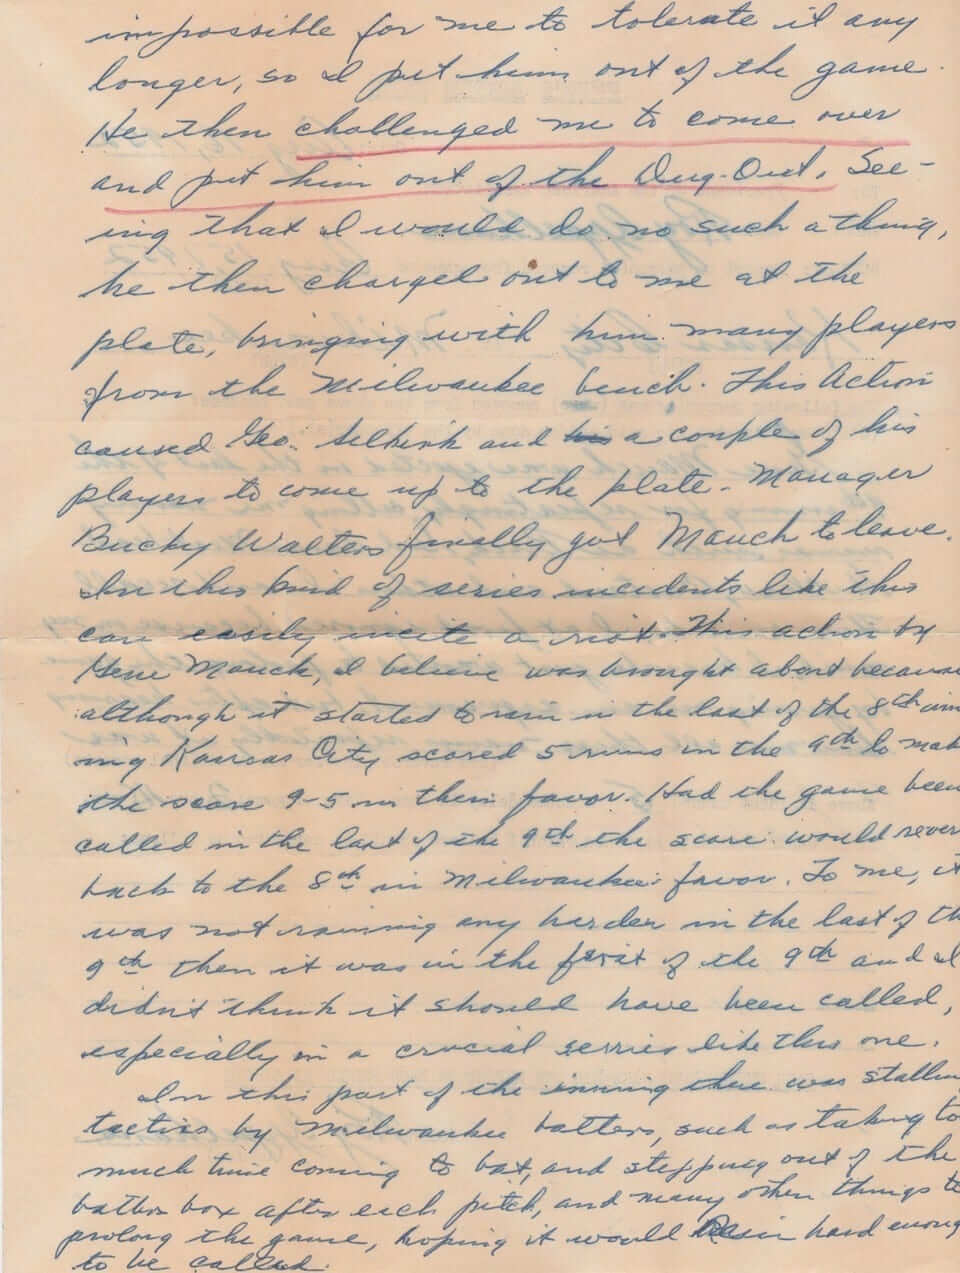 impossible for me to tolerate it any
longer, so I put him out of the game.
He then challenged me to come over
and put him out of the Dug-Out. See-
ing that I would do no such a thing,
he then charged out to me at the
plate, bringing with him many players
from the Milwaukee bench. This Action
caused Geo. Selkirk and his a couple of his
players to come up to the plate. Manager
Bucky Walters finally got Mauch to leave.
In this kind of series incidents like this
can easily incite a riot. This action by
Gene Mauch, I believe was brought about because
although it started to rain in the last of the 8th inn
ing Kansas City scored 5 runs in the 9th to mak
the score 9-5 in their favor. Had the game been
called in the last of the 9th the score would rever
back to the 8th in Milwaukee's favor. To me, it
was not raining any harder in the last of th
9th then it was in the first of the 9th and I
didn't think it should have been called,
especially in a crucial serries like this one.
In this part of the inning there was stallin
tactics by Milwaukee batters, such as taking to
much time coming to bat, and stepping out of the
batters box after each pitch, and many other things to
prolong the game, hoping it would Rain hard enoug
to be called.